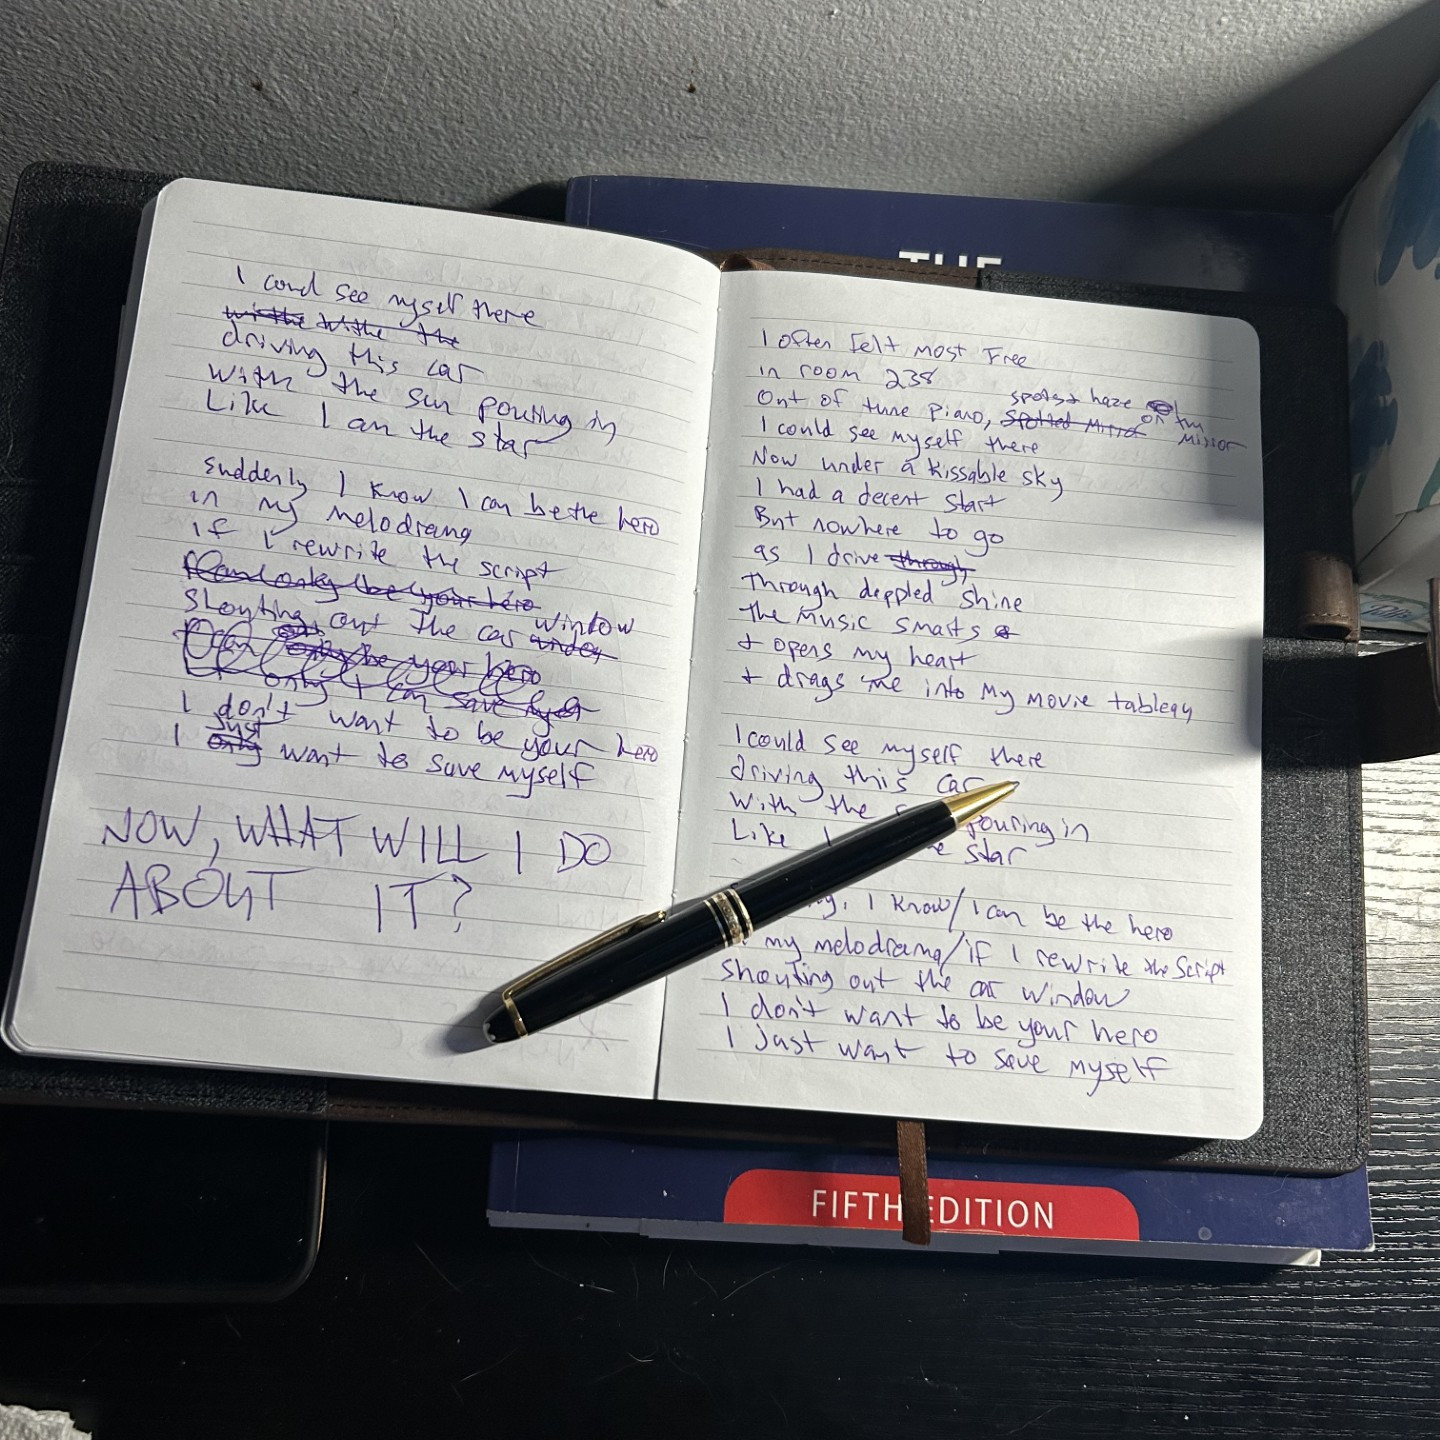 THE
I could see myself there
driving this car
with the sun pouring in
Like I am the star
suddenly I know I can be the hero
in my melodrama
if I rewrite the script
shouting out the car window
I don't want to be your hero
I just want to save myself
NOW, WHAT WILL I DO
ABOUT IT?
I often felt most free
in room 238
Out of tune piano, haze on the mirror
I could see myself there
Now under a kissable sky
I had a decent start
But nowhere to go
as I drive
through deppled shine
the music smarts
+ opens my heart
+ drags me into my movie tableau
I could see myself there
driving this car
With the pouring in
Like I star
I know/I can be the hero
my melodrama/if I rewrite the script
shouting out the car window
I don't want to be your hero
I just want to save myself
FIFTH EDITION